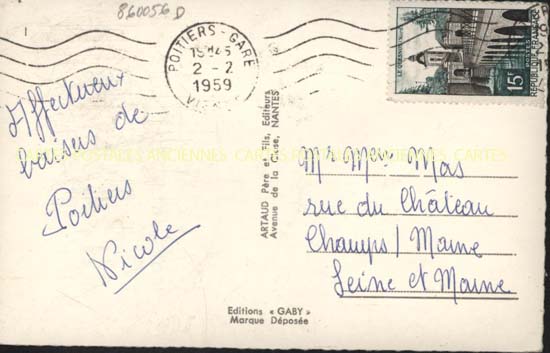 860056 D
POITIERS - GARE
19H45
2-2
1959
LE QUESNOY
15F
POSTES
REPUBLIQUE FRANÇAISE
Affectueux
baisers de
Poitiers
Nicole
ARTAUD Père et Fils, Editeurs
Avenue de la Close, NANTES
CARTES POSTALES ANCIENNES CARTES
Mr Mme Mas
rue du Château
Champs/Marne
Seine et Marne
Editions « GABY »
Marque Déposée